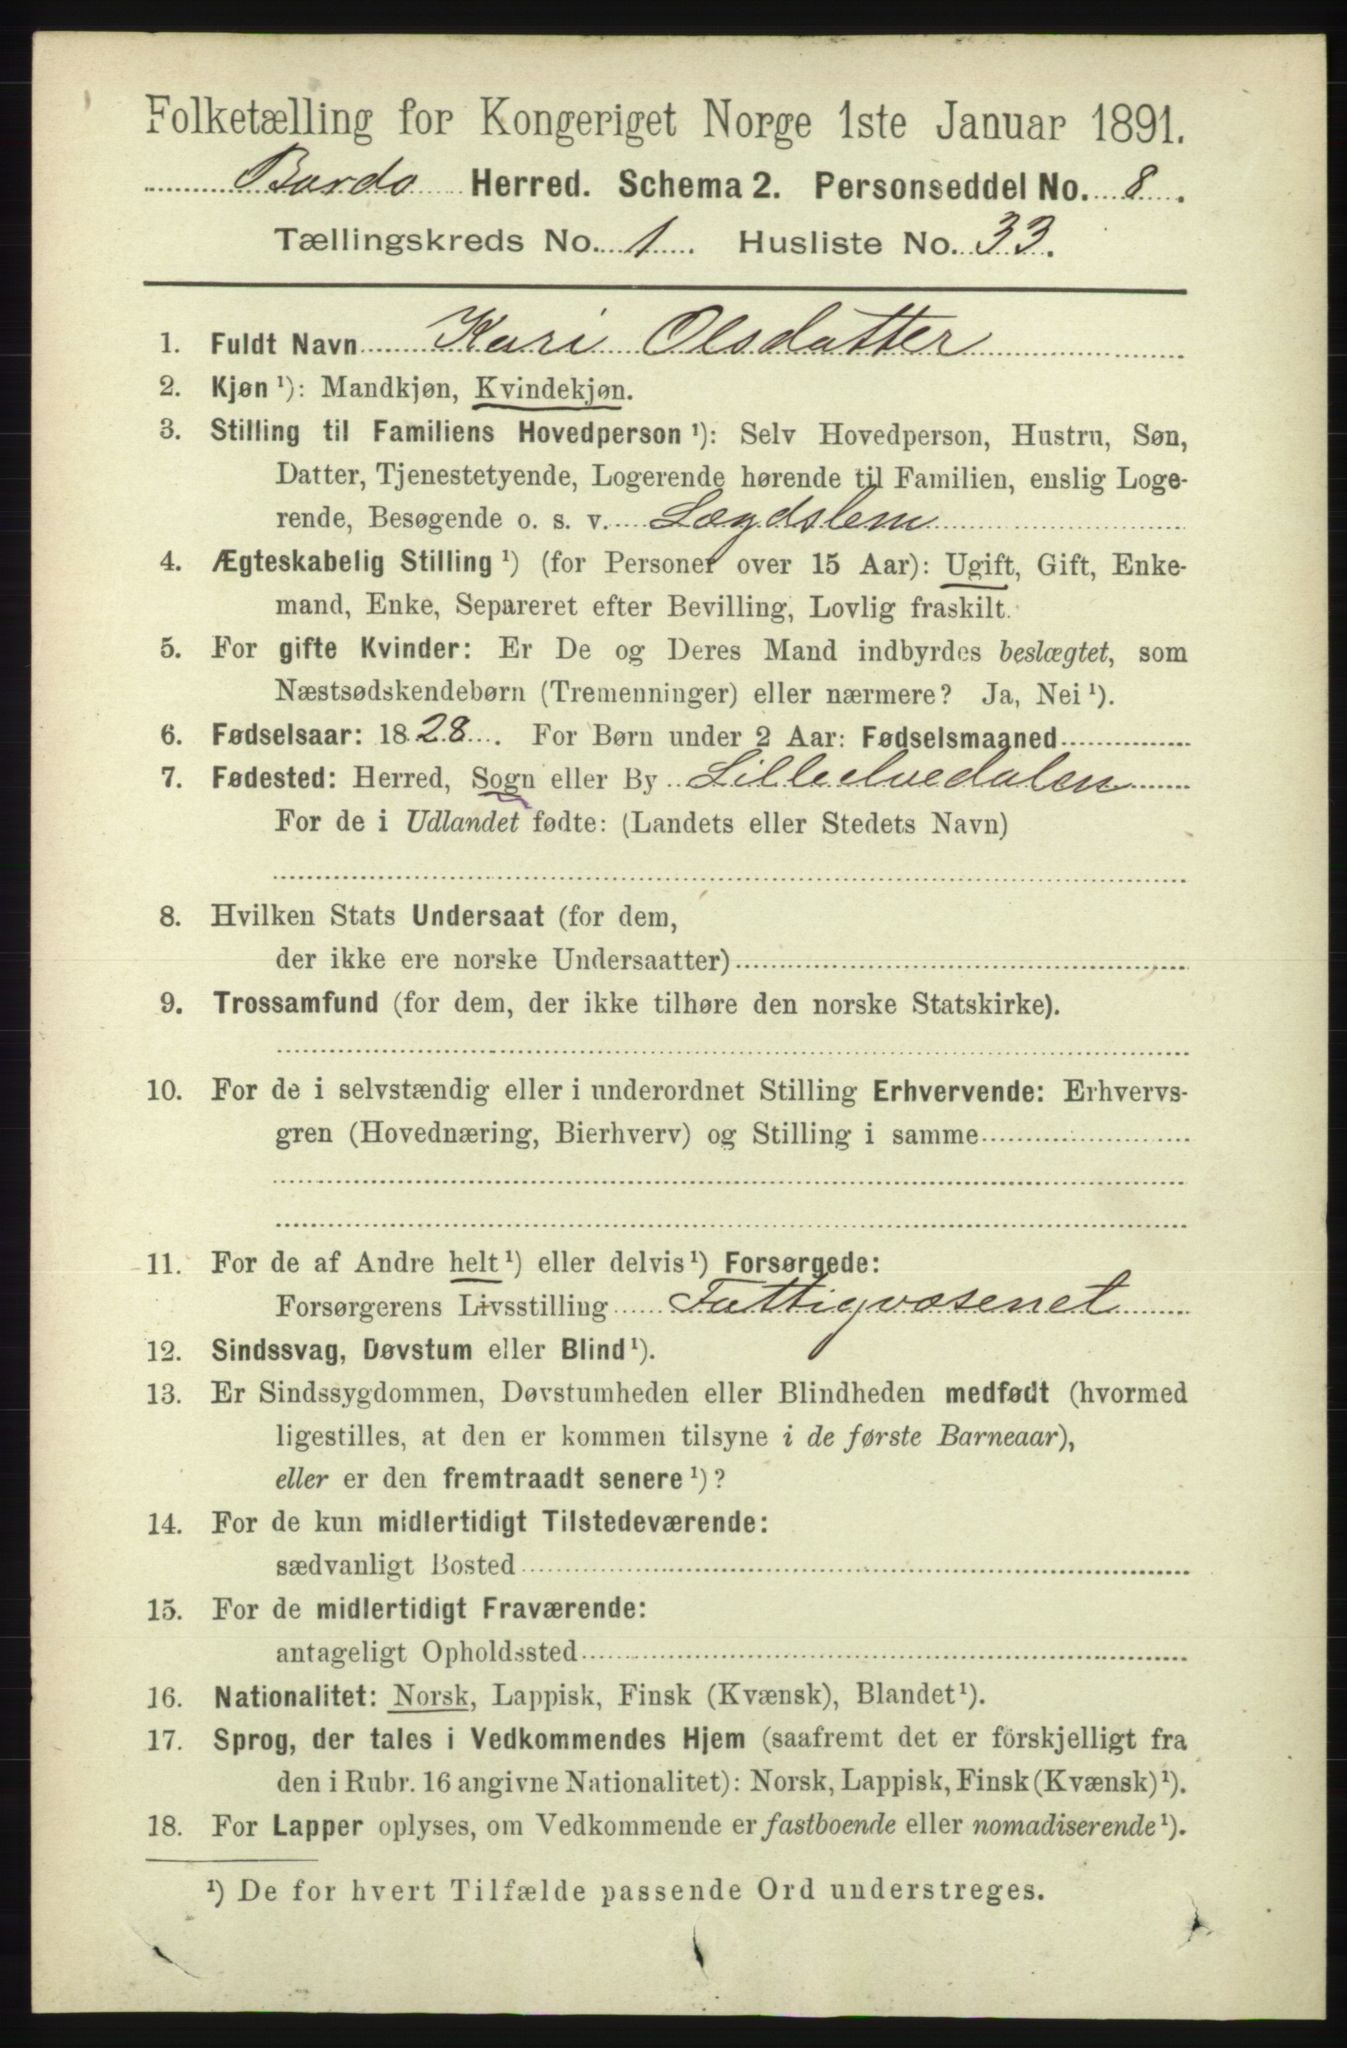 Folketælling for Kongeriget Norge 1ste Januar 1891.
Bardo Herred. Schema 2. Personseddel No. 8.
Tællingskreds No. 1. Husliste No. 33.
1. Fuldt Navn Kari Olsdatter
2. Kjøn ¹): Mandkjøn, Kvindekjøn.
3. Stilling til Familiens Hovedperson ¹): Selv Hovedperson, Hustru, Søn,
Datter, Tjenestetyende, Logerende hørende til Familien, enslig Loge-
rende, Besøgende o. s. v. Lægdslem
4. Ægteskabelig Stilling ¹) (for Personer over 15 Aar): Ugift, Gift, Enke-
mand, Enke, Separeret efter Bevilling, Lovlig fraskilt.
5. For gifte Kvinder: Er De og Deres Mand indbyrdes beslægtet, som
Næstsødskendebørn (Tremenninger) eller nærmere? Ja, Nei ¹).
6. Fødselsaar: 1828. For Børn under 2 Aar: Fødselsmaaned
7. Fødested: Herred, Sogn eller By Lilleelvedalen
For de i Udlandet fødte: (Landets eller Stedets Navn)
8. Hvilken Stats Undersaat (for dem,
der ikke ere norske Undersaatter)
9. Trossamfund (for dem, der ikke tilhøre den norske Statskirke).
10. For de i selvstændig eller i underordnet Stilling Erhvervende: Erhvervs-
gren (Hovednæring, Bierhverv) og Stilling i samme
11. For de af Andre helt ¹) eller delvis ¹) Forsørgede:
Forsørgerens Livsstilling Fattigvæsenet
12. Sindssvag, Døvstum eller Blind ¹).
13. Er Sindssygdommen, Døvstumheden eller Blindheden medfødt (hvormed
ligestilles, at den er kommen tilsyne i de første Barneaar),
eller er den fremtraadt senere ¹)?
14. For de kun midlertidigt Tilstedeværende:
sædvanligt Bosted
15. For de midlertidigt Fraværende:
antageligt Opholdssted
16. Nationalitet: Norsk, Lappisk, Finsk (Kvænsk), Blandet ¹).
17. Sprog, der tales i Vedkommendes Hjem (saafremt det er forskjelligt fra
den i Rubr. 16 angivne Nationalitet): Norsk, Lappisk, Finsk (Kvænsk) ¹).
18. For Lapper oplyses, om Vedkommende er fastboende eller nomadiserende ¹).
¹) De for hvert Tilfælde passende Ord understreges.